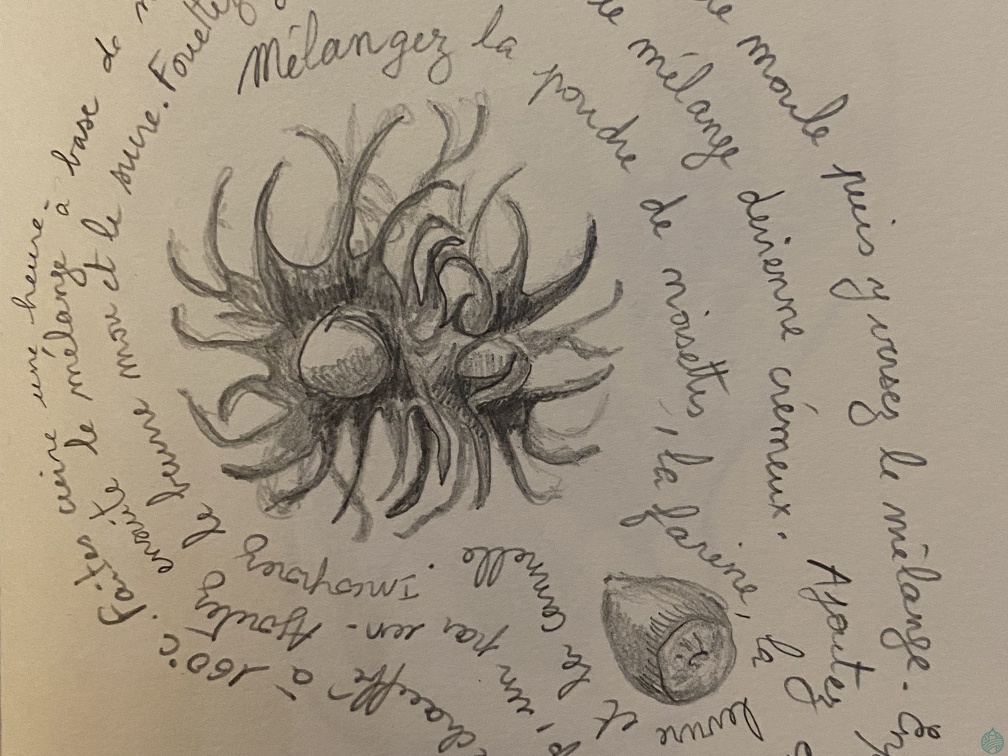 Mélangez la poudre de noisettes, la farine, la levure et la cannelle. Incorporez le beurre mou et le sucre. Fouettez
le mélange devienne crémeux. Ajoutez
un par un. Ajoutez ensuite le mélange à base de
le moule puis y versez le mélange.
chauffé à 160°C. Faites cuire une heure.